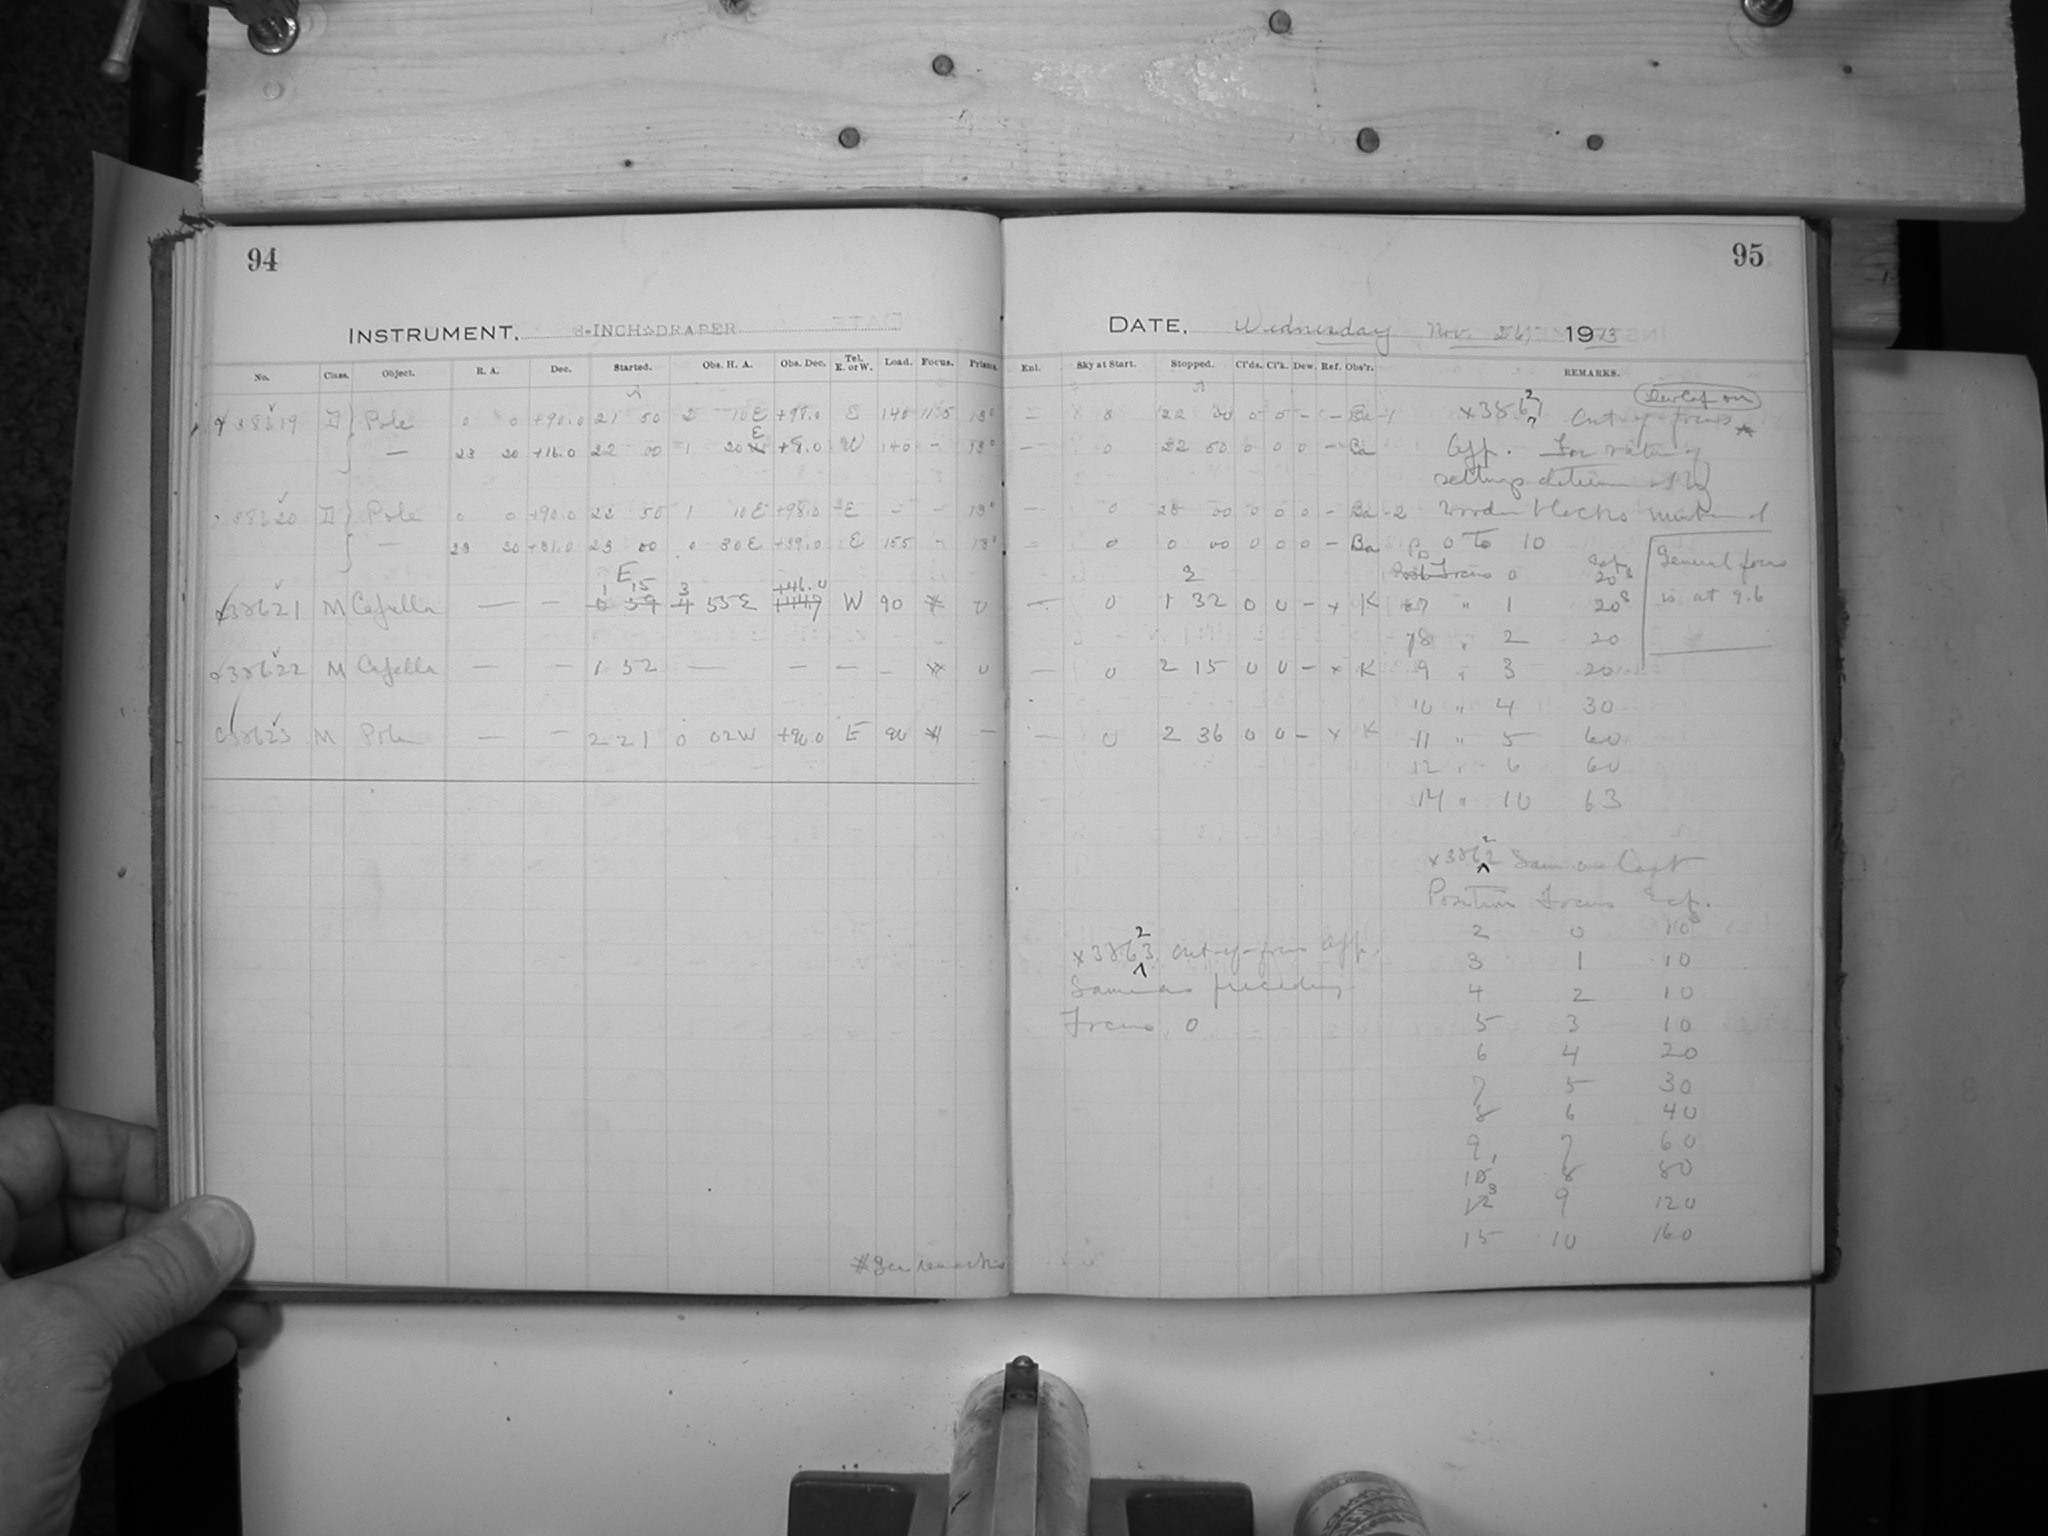 94
INSTRUMENT. 8-INCH DRAPER
No. Class. Object. R. A. Dec. Started. Obs. H. A. Obs. Dec. Tel. E. or W. Load. Focus. Prisms.
38619 Pole 0 0 +90.0 21 50 10 E +98.0 E 140 11.5 13°
— 23 20 +16.0 22 00 1 20 E +8.0 W 140 - 13°
38620 Pole 0 0 +90.0 22 50 1 10 E +98.0 E - - 13°
— 23 30 +31.0 23 00 0 30 E +39.0 E 155 - 13°
38621 M Capella — — 1 15 3 55 E +46.0 W 90 * 0
38622 M Capella — — 1 52 — — — - * 0
38623 M Pole — — 2 21 0 02 W +90.0 E 90 * —
* See remarks
95
DATE. Wednesday Nov. 26, 1913
Enl. Sky at Start. Stopped. Cl'ds. Cl'k. Dew. Ref. Obs'r. REMARKS.
— 0 22 00 0 0 - - Ba
— 0 22 50 0 0 0 - Ba
— 0 23 00 0 0 0 - Ba
— 0 0 00 0 0 0 - Ba
— 0 1 32 0 0 - x K
— 0 2 15 0 0 - x K
— 0 2 36 0 0 - x K
Out-of-focus
App. For
settings
wooden blocks
0 to 10
Focus 0 20s
7 " 1 20s
8 " 2 20
9 " 3 20
10 " 4 30
11 " 5 60
12 " 6 60
14 " 10 63
General focus
is at 9.6
x38622 Same as
Position Focus Exp.
2 0 10s
3 1 10
4 2 10
5 3 10
6 4 20
7 5 30
8 6 40
9 7 60
10 8 80
9 120
15 10 160
x38623 Out-of-focus App.
Same as preceding
Focus 0